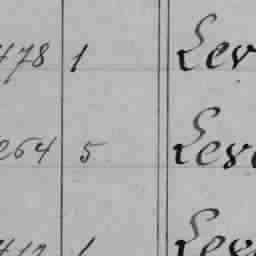 478 1 Lev
264 5 Leva
412 1 Lev